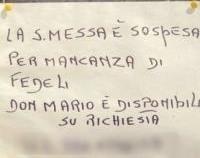 LA S. MESSA È SOSPESA
PER MANCANZA DI
FEDELI
DON MARIO È DISPONIBIL
SU RICHIESTA